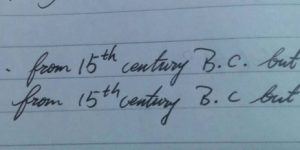 . from 15th century B.C. but
from 15th century B.C but